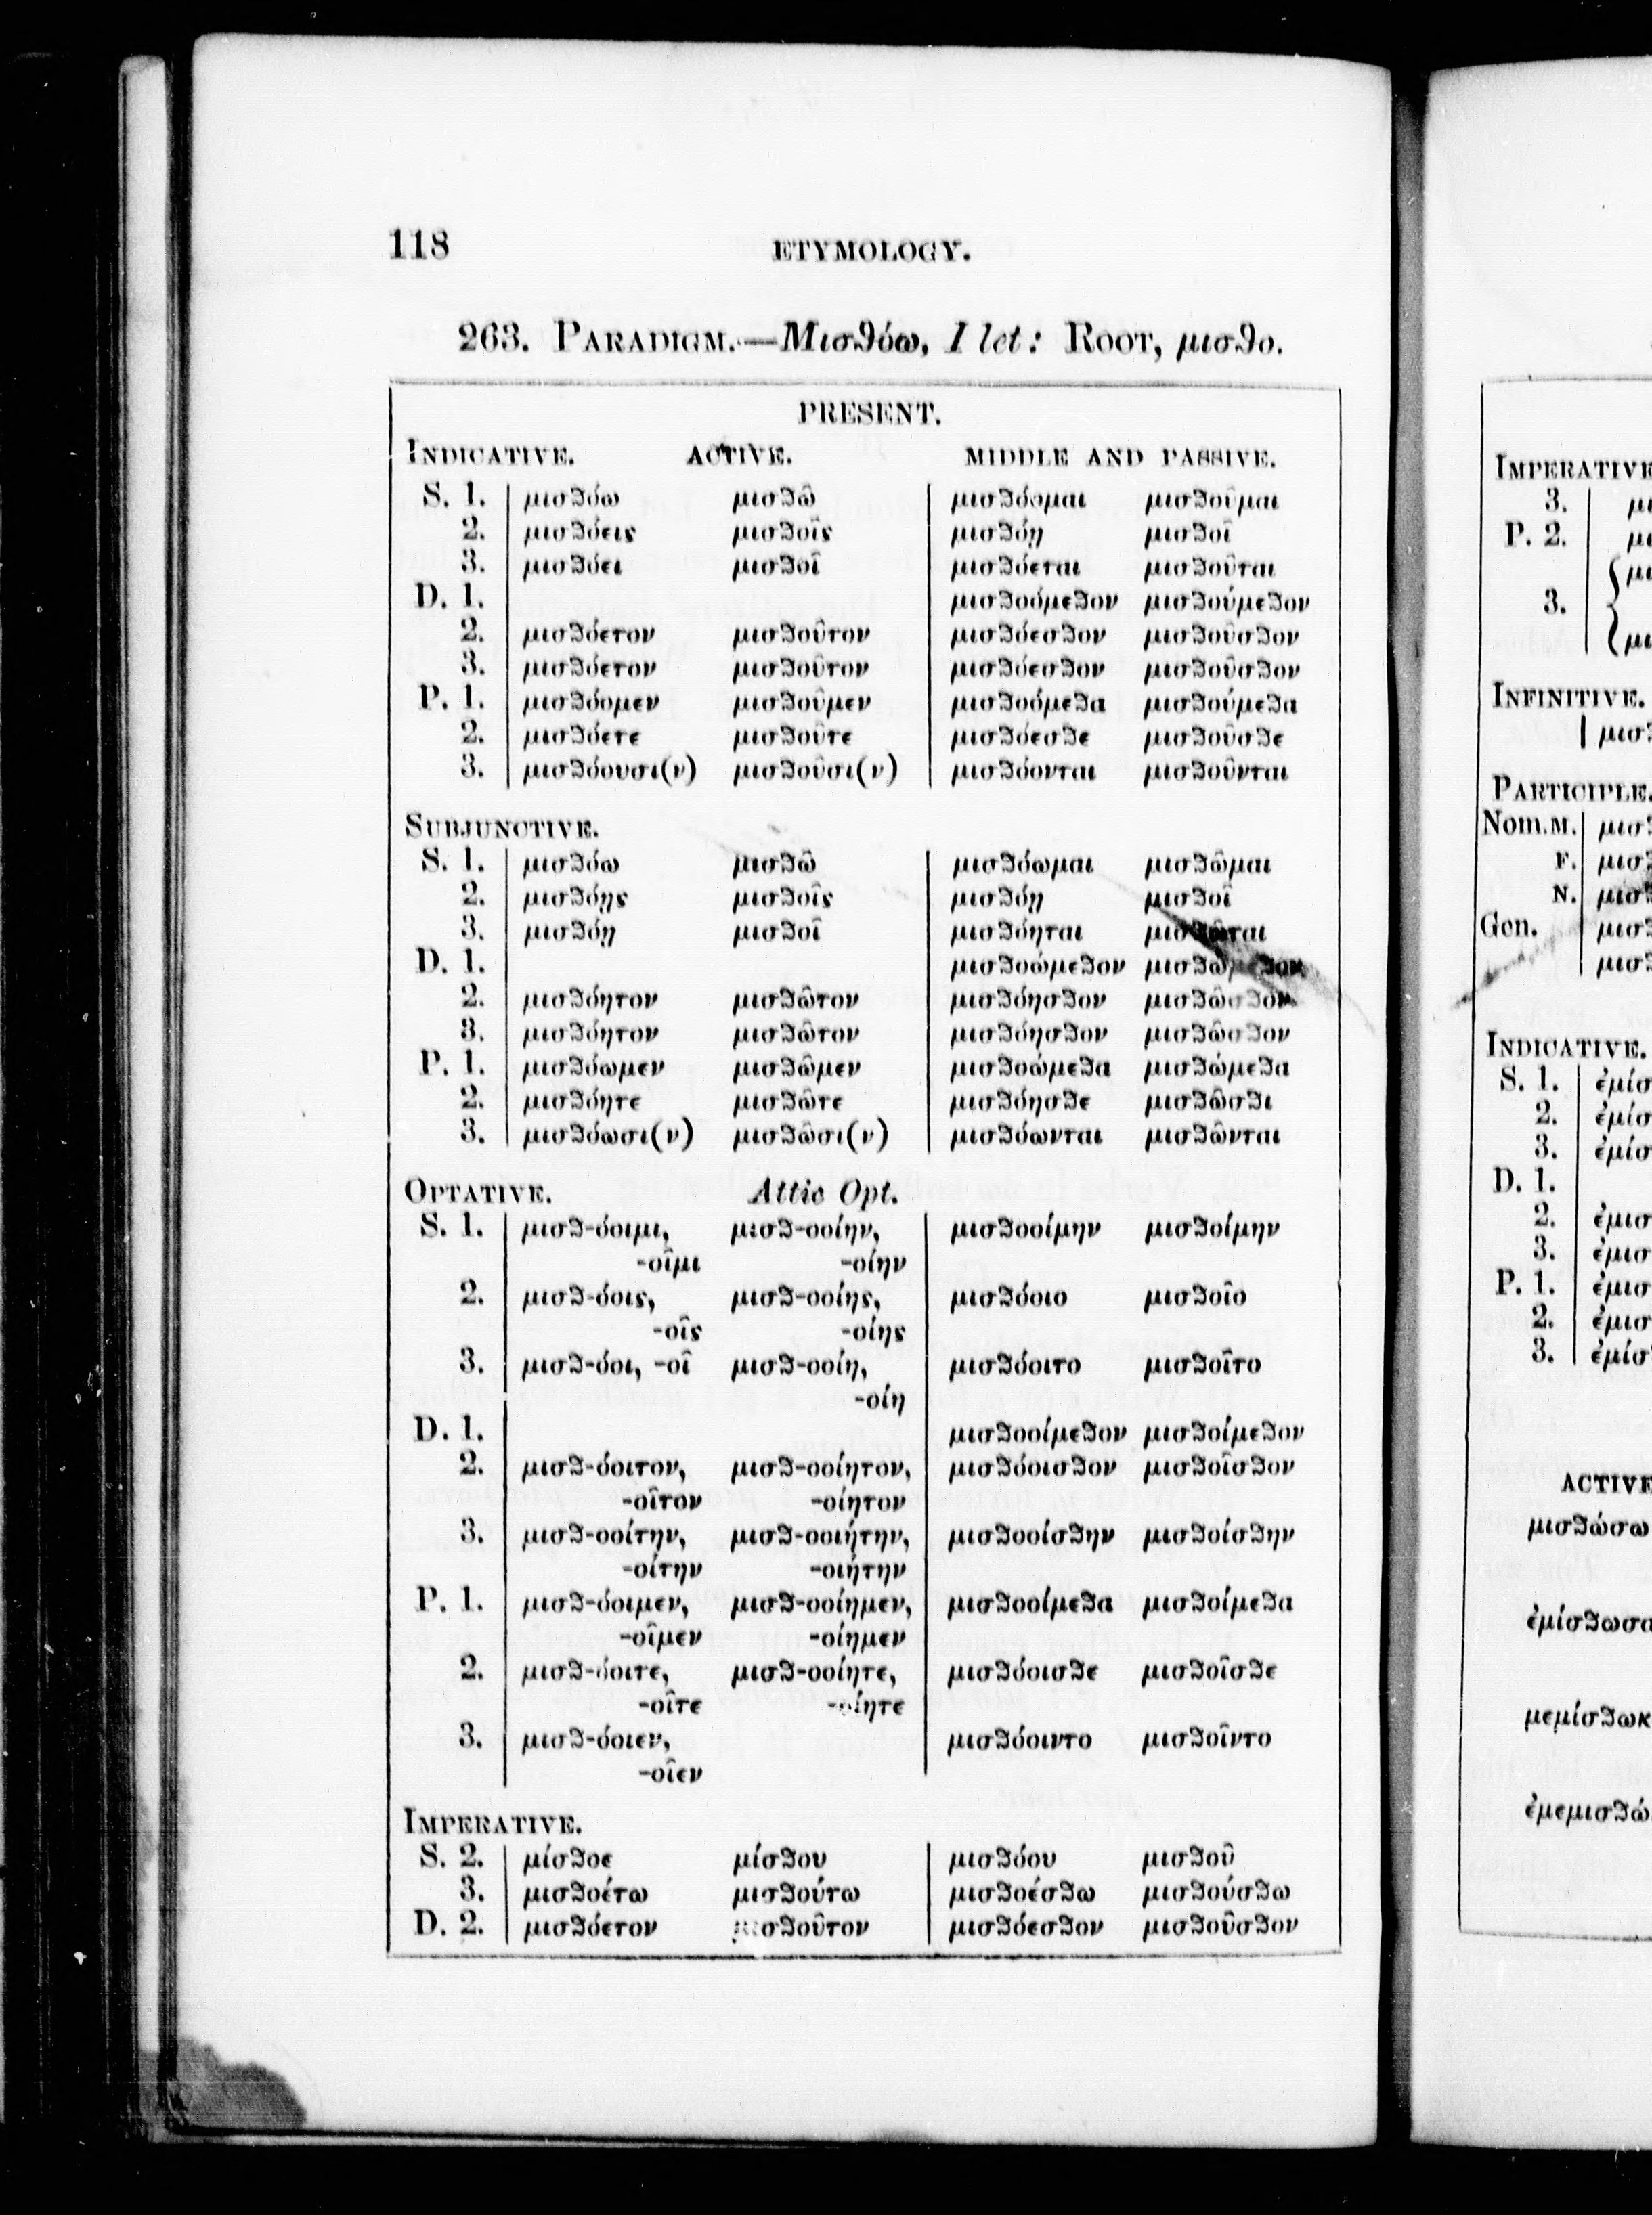 118 ETYMOLOGY.
263. PARADIGM.—Μισϑόω, I let: ROOT, μισϑο.
PRESENT.
INDICATIVE. ACTIVE. MIDDLE AND PASSIVE.
S. 1. μισϑόω μισϑῶ μισϑόομαι μισϑοῦμαι
2. μισϑόεις μισϑοῖς μισϑόῃ μισϑοῖ
3. μισϑόει μισϑοῖ μισϑόεται μισϑοῦται
D. 1. μισϑοόμεϑον μισϑούμεϑον
2. μισϑόετον μισϑοῦτον μισϑόεσϑον μισϑοῦσϑον
3. μισϑόετον μισϑοῦτον μισϑόεσϑον μισϑοῦσϑον
P. 1. μισϑόομεν μισϑοῦμεν μισϑοόμεϑα μισϑούμεϑα
2. μισϑόετε μισϑοῦτε μισϑόεσϑε μισϑοῦσϑε
3. μισϑόουσι(ν) μισϑοῦσι(ν) μισϑόονται μισϑοῦνται
SUBJUNCTIVE.
S. 1. μισϑόω μισϑῶ μισϑόωμαι μισϑῶμαι
2. μισϑόῃς μισϑοῖς μισϑόῃ μισϑοῖ
3. μισϑόῃ μισϑοῖ μισϑόηται μισϑῶται
D. 1. μισϑοώμεϑον μισϑώμεϑον
2. μισϑόητον μισϑῶτον μισϑόησϑον μισϑῶσϑον
3. μισϑόητον μισϑῶτον μισϑόησϑον μισϑῶσϑον
P. 1. μισϑόωμεν μισϑῶμεν μισϑοώμεϑα μισϑώμεϑα
2. μισϑόητε μισϑῶτε μισϑόησϑε μισϑῶσϑι
3. μισϑόωσι(ν) μισϑῶσι(ν) μισϑόωνται μισϑῶνται
OPTATIVE. Attic Opt.
S. 1. μισϑ-όοιμι, μισϑ-οοίην, μισϑοοίμην μισϑοίμην
-οῖμι -οίην
2. μισϑ-όοις, μισϑ-οοίης, μισϑόοιο μισϑοῖο
-οῖς -οίης
3. μισϑ-όοι, -οῖ μισϑ-οοίη, μισϑόοιτο μισϑοῖτο
-οίη
D. 1. μισϑοοίμεϑον μισϑοίμεϑον
2. μισϑ-όοιτον, μισϑ-οοίητον, μισϑόοισϑον μισϑοῖσϑον
-οῖτον -οίητον
3. μισϑ-οοίτην, μισϑ-οοιήτην, μισϑοοίσϑην μισϑοίσϑην
-οίτην -οιήτην
P. 1. μισϑ-όοιμεν, μισϑ-οοίημεν, μισϑοοίμεϑα μισϑοίμεϑα
-οῖμεν -οίημεν
2. μισϑ-όοιτε, μισϑ-οοίητε, μισϑόοισϑε μισϑοῖσϑε
-οῖτε -οίητε
3. μισϑ-όοιεν, μισϑόοιντο μισϑοῖντο
-οῖεν
IMPERATIVE.
S. 2. μίσϑοε μίσϑου μισϑόου μισϑοῦ
3. μισϑοέτω μισϑούτω μισϑοέσϑω μισϑούσϑω
D. 2. μισϑόετον μισϑοῦτον μισϑόεσϑον μισϑοῦσϑον
IMPERATIVE
3.
P. 2.
3.
INFINITIVE.
PARTICIPLE.
Nom.M.
F.
N.
Gen.
INDICATIVE.
S. 1.
2.
3.
D. 1.
2.
3.
P. 1.
2.
3.
ACTIVE
μισϑώσω
ἐμίσϑωσα